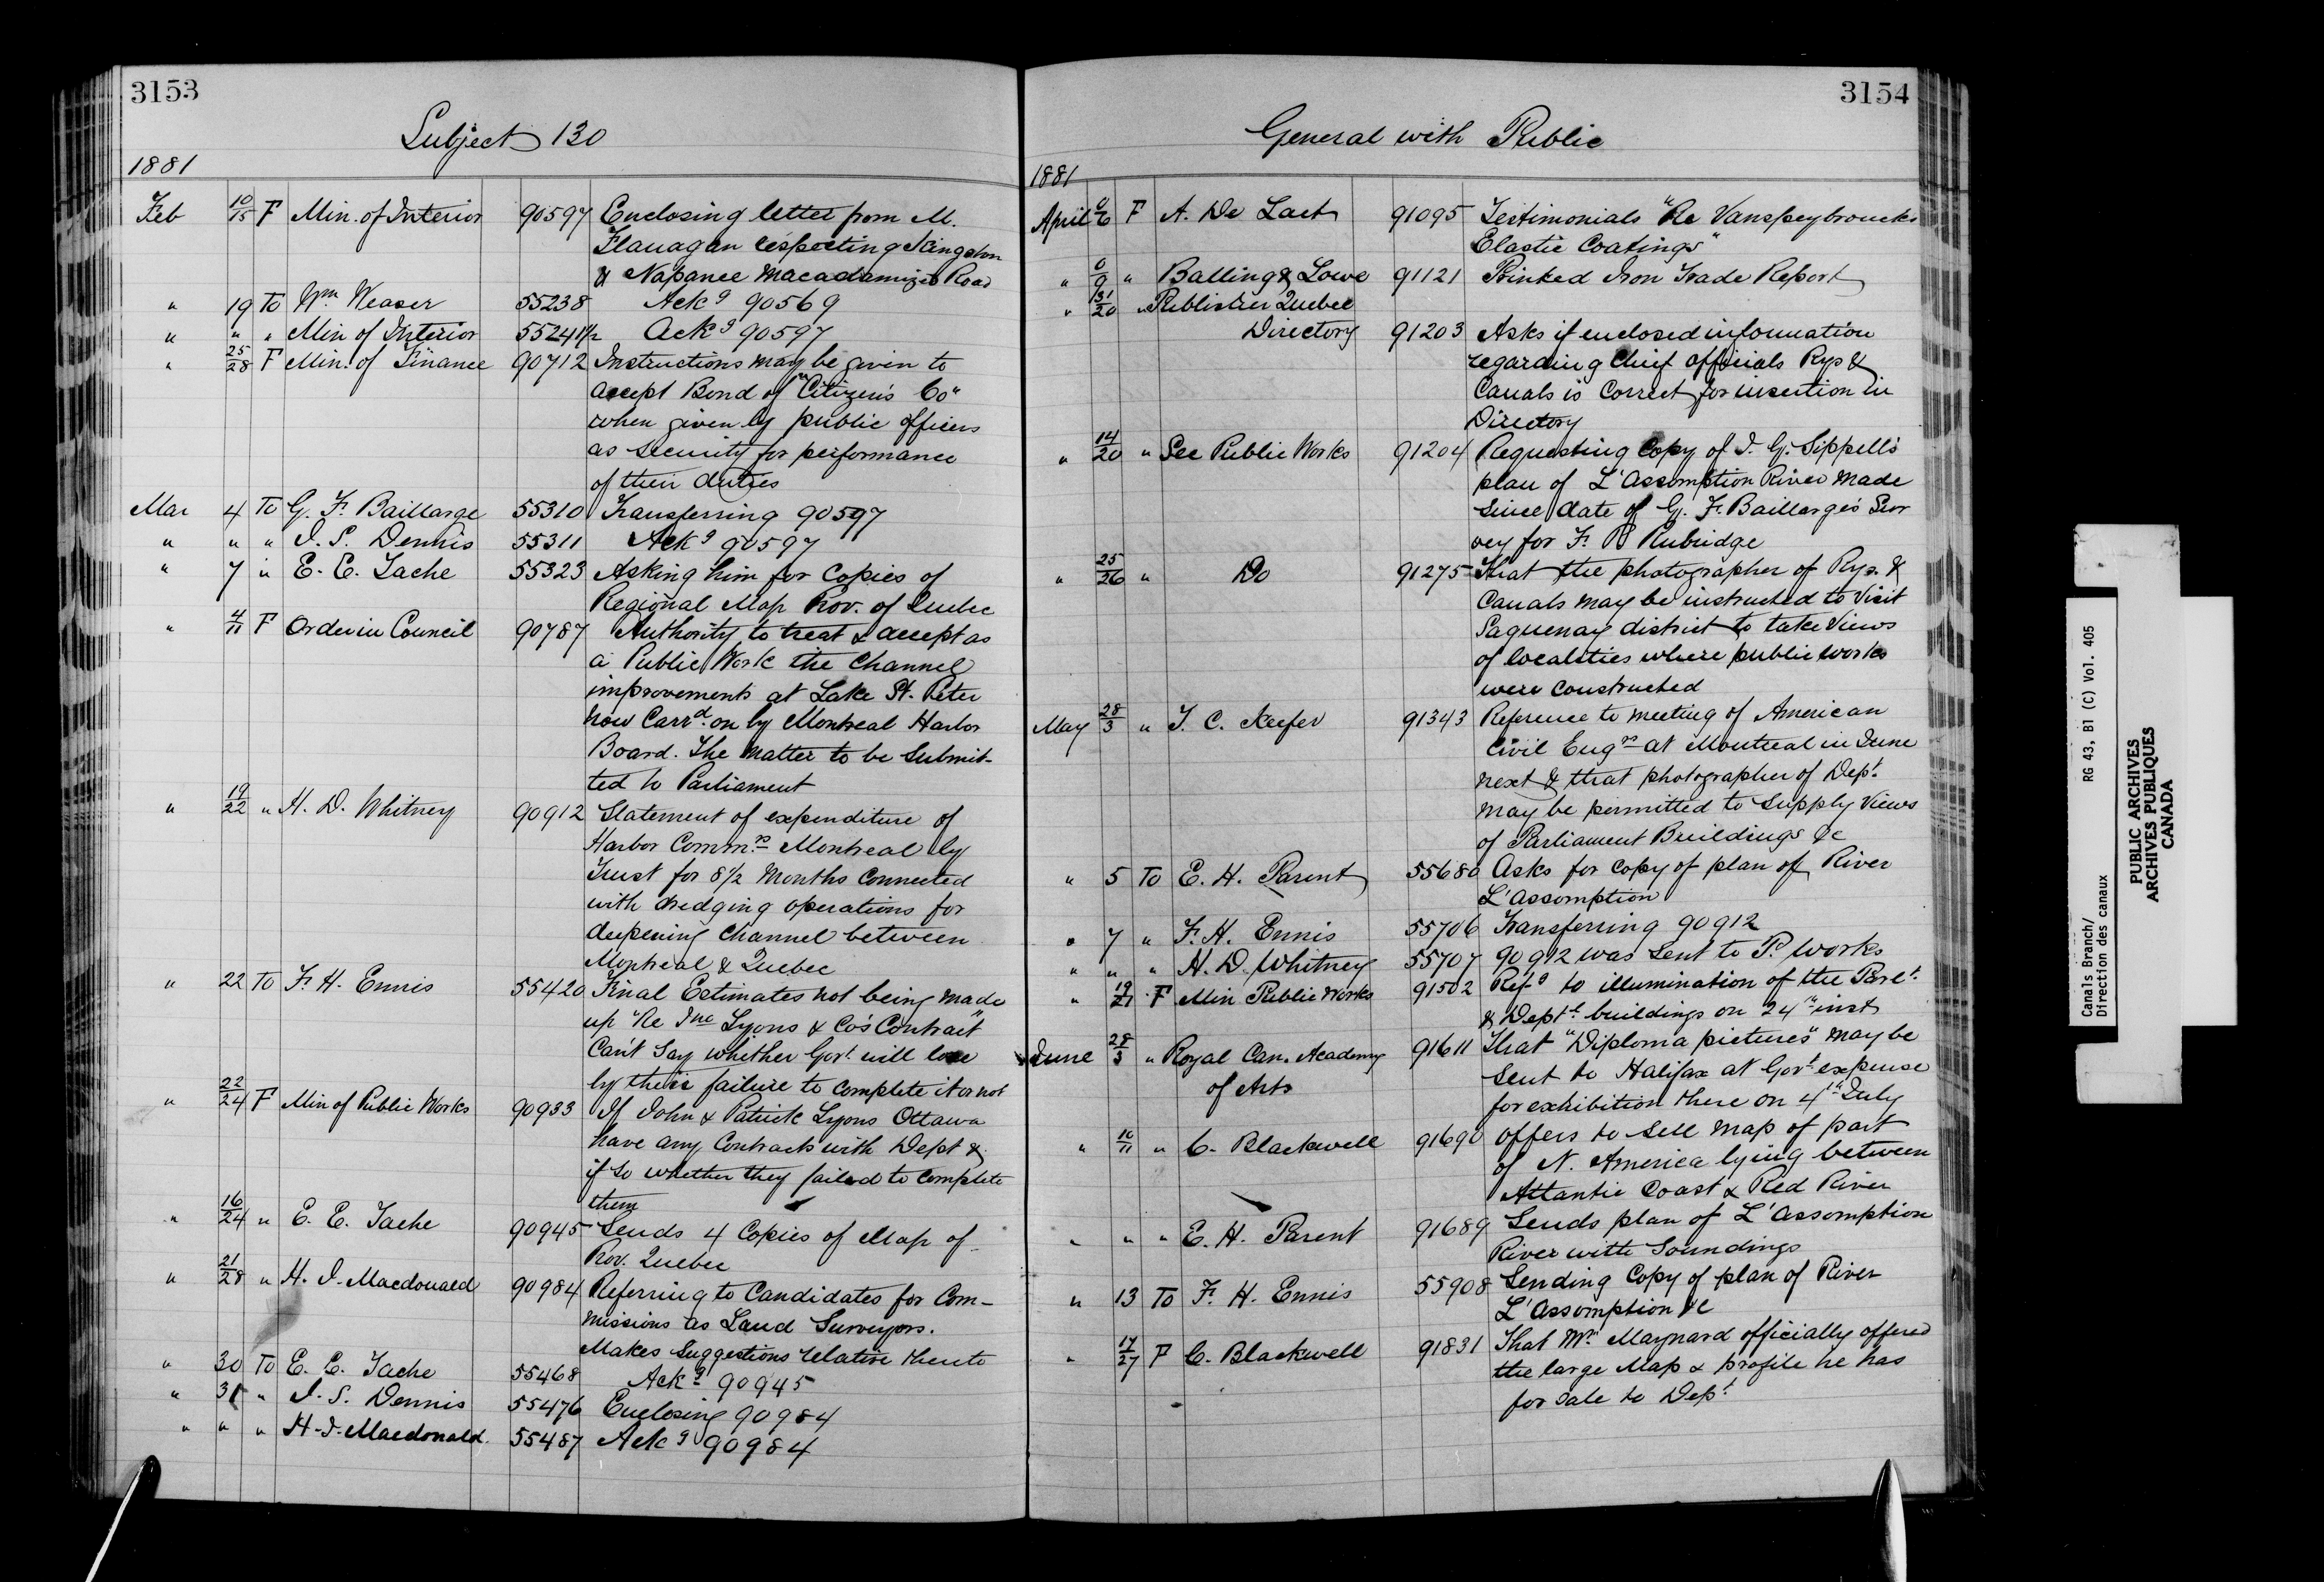 3153
Subject 130
1881
Feb 10/15 F Min. of Interior 90597 Enclosing letter from M.
Flanagan respecting Kingston
& Napanee Macadamized Road
" 19 To Wm Weaser 55238 Ackg 90569
" " " Min of Interior 55241½ Ackg 90597
" 25/28 F Min. of Finance 90712 Instructions may be given to
accept Bond of "Citizen's Co"
when given by public officers
as security for performance
of their duties
Mar 4 To G. F. Baillarge 55310 Transferring 90597
" " " J. S. Dennis 55311 Ackg 90597
" 7 " E. E. Tache 55323 Asking him for Copies of
Regional Map Prov. of Quebec
" 4/11 F Order in Council 90787 Authority to treat & accept as
a Public Work the Channel
improvements at Lake St. Peter
now Carrd on by Montreal Harbor
Board. The matter to be Submit-
ted to Parliament
" 19/22 " H. D. Whitney 90912 Statement of expenditure of
Harbor Commrs Montreal by
Trust for 8½ Months Connected
with dredging operations for
deepening Channel between
Montreal & Quebec
" 22 To F. H. Ennis 55420 Final Estimates not being made
up "Re Jno Lyons & Co's Contract"
Can't Say whether Govt will lose
by their failure to complete it or not
" 22/24 F Min of Public Works 90933 If John & Patrick Lyons Ottawa
have any Contracts with Dept &
if so whether they failed to complete
them
" 16/24 " E. E. Tache 90945 Sends 4 Copies of Map of
Prov. Quebec
" 21/28 " H. J. Macdonald 90984 Referring to Candidates for Com-
missions as Land Surveyors.
Makes Suggestions relative thereto
" 30 To E. E. Tache 55468 Ackg 90945
" 31 " J. S. Dennis 55476 Enclosing 90984
" " " H. J. Macdonald 55487 Ackg 90984
3154
General with Public
1881
April 6 F A. De Laet 91095 Testimonials "Re Vanspeybroucks
Elastic Coatings"
" 6/9 " Balling & Lowe 91121 Printed Iron Trade Report
" 31/20 " Publisher Quebec
Directory 91203 Asks if enclosed information
regarding Chief officials Rys &
Canals is Correct for insertion in
Directory
" 14/20 " Sec Public Works 91204 Requesting Copy of J. G. Sippell's
plan of L'Assomption River made
Since date of G. F. Baillarge's Sur
vey for F. P. Rubidge
" 25/26 " Do 91275 That the photographer of Rys. &
Canals may be instructed to Visit
Saguenay district to take Views
of localities where public works
were constructed
May 28/3 " T. C. Keefer 91343 Reference to meeting of American
Civil Engrs at Montreal in June
next & that photographer of Dept.
may be permitted to Supply Views
of Parliament Buildings &c
" 5 To E. H. Parent 55680 Asks for copy of plan of River
L'Assomption
" 7 " F. H. Ennis 55706 Transferring 90912
" " " H. D. Whitney 55707 90912 was sent to P. Works
" 19/21 F Min Public Works 91502 Refg to illumination of the Parlt
& Deptl buildings on 24th inst
June 28/3 " Royal Can. Academy 91611 That "Diploma pictures" may be
of Arts sent to Halifax at Govt expense
for exhibition there on 4th July
" 10/11 " C. Blackwell 91690 Offers to Sell map of part
of N. America lying between
Atlantic Coast & Red River
" " " E. H. Parent 91689 Sends plan of L'Assomption
River with Soundings
" 13 To F. H. Ennis 55908 Sending Copy of plan of River
L'Assomption &c
" 17/27 F C. Blackwell 91831 That Mr Maynard officially offered
the large Map & profile he has
for sale to Dept
Canals Branch/ RG 43, B1 (C) Vol. 405
Direction des canaux
PUBLIC ARCHIVES
ARCHIVES PUBLIQUES
CANADA